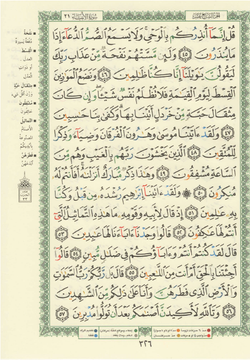 قُلْ إِنَّمَآ أُنذِرُكُم بِٱلْوَحْىِ وَلَا يَسْمَعُ ٱلصُّمُّ ٱلدُّعَآءَ إِذَا
مَا يُنذَرُونَ ٤٥ وَلَئِن مَّسَّتْهُمْ نَفْحَةٌ مِّنْ عَذَابِ رَبِّكَ
لَيَقُولُنَّ يَٰوَيْلَنَآ إِنَّا كُنَّا ظَٰلِمِينَ ٤٦ وَنَضَعُ ٱلْمَوَٰزِينَ
ٱلْقِسْطَ لِيَوْمِ ٱلْقِيَٰمَةِ فَلَا تُظْلَمُ نَفْسٌ شَيْـًٔا وَإِن كَانَ
مِثْقَالَ حَبَّةٍ مِّنْ خَرْدَلٍ أَتَيْنَا بِهَا وَكَفَىٰ بِنَا حَٰسِبِينَ
٤٧ وَلَقَدْ ءَاتَيْنَا مُوسَىٰ وَهَٰرُونَ ٱلْفُرْقَانَ وَضِيَآءً وَذِكْرًا
لِّلْمُتَّقِينَ ٤٨ ٱلَّذِينَ يَخْشَوْنَ رَبَّهُم بِٱلْغَيْبِ وَهُم مِّنَ
ٱلسَّاعَةِ مُشْفِقُونَ ٤٩ وَهَٰذَا ذِكْرٌ مُّبَارَكٌ أَنزَلْنَٰهُ أَفَأَنتُمْ لَهُۥ
مُنكِرُونَ ٥٠ وَلَقَدْ ءَاتَيْنَآ إِبْرَٰهِيمَ رُشْدَهُۥ مِن قَبْلُ وَكُنَّا
بِهِۦ عَٰلِمِينَ ٥١ إِذْ قَالَ لِأَبِيهِ وَقَوْمِهِۦ مَا هَٰذِهِ ٱلتَّمَاثِيلُ ٱلَّتِىٓ
أَنتُمْ لَهَا عَٰكِفُونَ ٥٢ قَالُوا۟ وَجَدْنَآ ءَابَآءَنَا لَهَا عَٰبِدِينَ ٥٣
قَالَ لَقَدْ كُنتُمْ أَنتُمْ وَءَابَآؤُكُمْ فِى ضَلَٰلٍ مُّبِينٍ ٥٤ قَالُوٓا۟
أَجِئْتَنَا بِٱلْحَقِّ أَمْ أَنتَ مِنَ ٱللَّٰعِبِينَ ٥٥ قَالَ بَل رَّبُّكُمْ رَبُّ ٱلسَّمَٰوَٰتِ
وَٱلْأَرْضِ ٱلَّذِى فَطَرَهُنَّ وَأَنَا۠ عَلَىٰ ذَٰلِكُم مِّنَ ٱلشَّٰهِدِينَ
٥٦ وَتَٱللَّهِ لَأَكِيدَنَّ أَصْنَٰمَكُم بَعْدَ أَن تُوَلُّوا۟ مُدْبِرِينَ ٥٧
٣٢٦